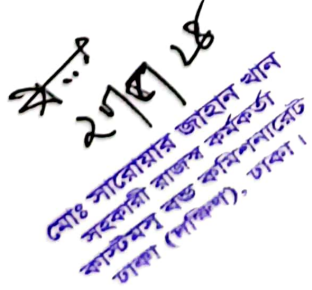 ২৭/৫/২৪
মোঃ সারোয়ার জাহান খান
সহকারী রাজস্ব কর্মকর্তা
কাস্টমস্ বন্ড কমিশনারেট
ঢাকা (দক্ষিণ), ঢাকা।